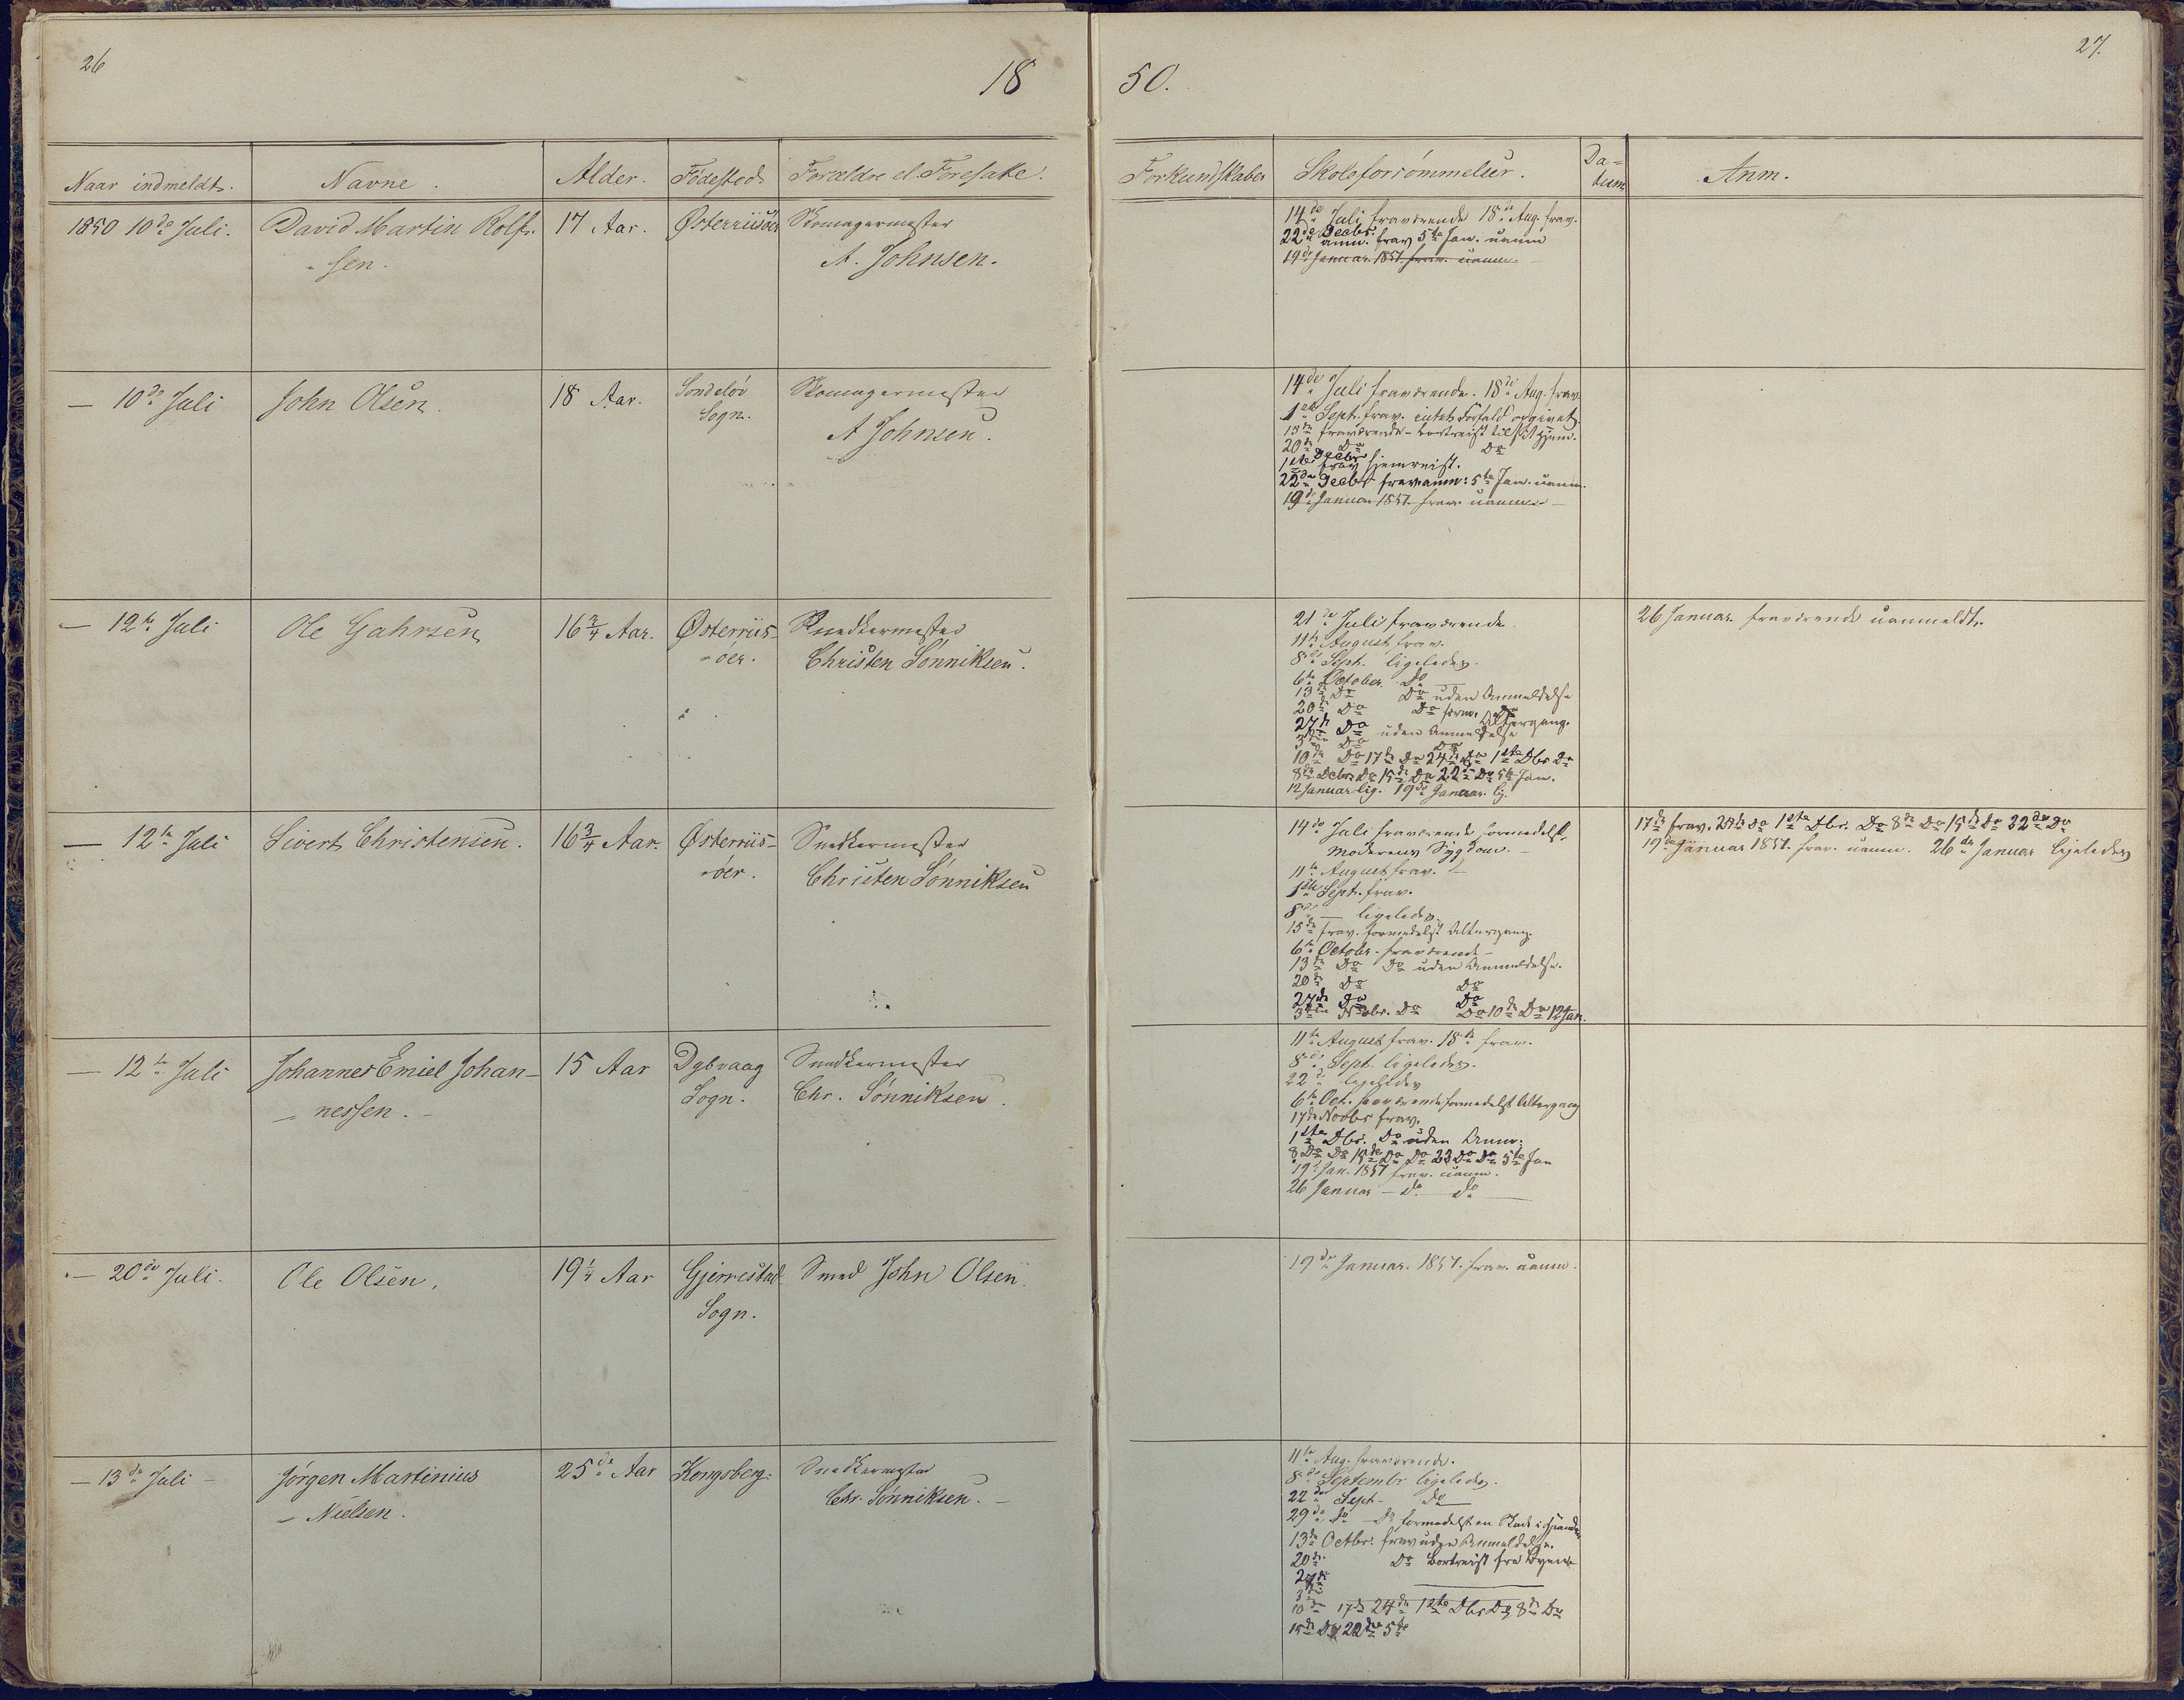 26
18
50.
27.
Naar indmeldt.
Navne.
Alder.
Födested.
Forældre el. Foresatte.
Forkundskaber
Skoleforsömmelser.
Da-
tum
Anm.
1850 10de Juli.
David Martin Rolf-
sen.
17 Aar.
Østerriisöer
Skomagermester
A. Johnsen.
14de Juli fraværende 18de Aug. frav.
22de Decbr. anm. frav 5te Jan. uanm
19de Januar 1851. frav. uanm.
— 10de Juli
John Olsen.
18 Aar.
Sondelöv
Sogn.
Skomagermester
A Johnsen.
14de Juli fraværende. 18de Aug. frav
1ste Sept. frav. intet Forfald opgivet.
15de fraværende - bortreist til sit Hjem.
20de Do Do
1ste Decbr frav hjemreist.
22de Decbr frav anm: 5te Jan. uanm.
19de Januar 1851. frav uanm. —
— 12te Juli
Ole Gahrsen
16 3/4 Aar.
Østerriis-
öer.
Snedkermester
Christen Sönniksen.
21de Juli fraværende.
11te August frav.
8de Sept. ligeledes.
6te October Do —
13de Do Do uden Anmeldelse
20de Do Do form. Altergang.
27de Do uden Anmeldelse
3die Do Do
10de Do 17de Do 24de Do 1ste Dbr Do
8de Decbr Do 15de Do 22de Do 5te Jan.
12 Januar lig. 19de Januar lig.
26 Januar fraværende uanmeldt.
— 12te Juli
Sivert Christensen.
16 3/4 Aar.
Østerriis-
öer.
Snedkermester
Christen Sönniksen
14de Juli fraværende formedelst
Moderens Sygdom. —
11te August frav. —
1ste Sept. frav.
8de — ligeledes.
15de frav. formedelst Altergang.
6te Octobr. fraværende —
13de Do Do uden Anmeldelse.
20de Do Do
27de Do Do
3die Novbr. Do Do 10de Do 12 Jan.
17de frav. 24de Do 1ste Dbr. Do 8de Do 15de Do 22de Do
19de Januar 1851. frav. uanm. 26de Januar ligeledes
— 12te Juli
Johannes Emiel Johan-
nessen. —
15 Aar
Dybvaag
Sogn.
Snedkermester
Chr. Sönniksen.
11te August frav. 18de frav.
8de Sept. ligeledes.
22de ligeledes
6te Oct. fraværende formedelst Altergang
17de Novbr frav.
1ste Dbr. Do uden Anm.
8 Do Do 15de Do Do 22 Do Do 5te Jan
19de Jan. 1851 frav. uanm.
26 Januar — do do —
— 20de Juli.
Ole Olsen.
19 1/4 Aar
Gjerrestad
Sogn.
Smed John Olsen.
19de Januar 1851. frav. uanm.
— 13de Juli —
Jörgen Martinius
Nielsen.
25de Aar
Kongsberg.
Snedkermester
Chr. Sönniksen. —
11te Aug. fraværende.
8de Septembr ligeledes.
22de Sept — do —
29de do — do formedelst en Skade i Haanden
13de Octbr. frav uden Anmeldelse.
20de Do Bortreist fra Byen
27de
3die
10de 17de 24de 1ste Dbr Do 8de Do
15de Do 22de 5te